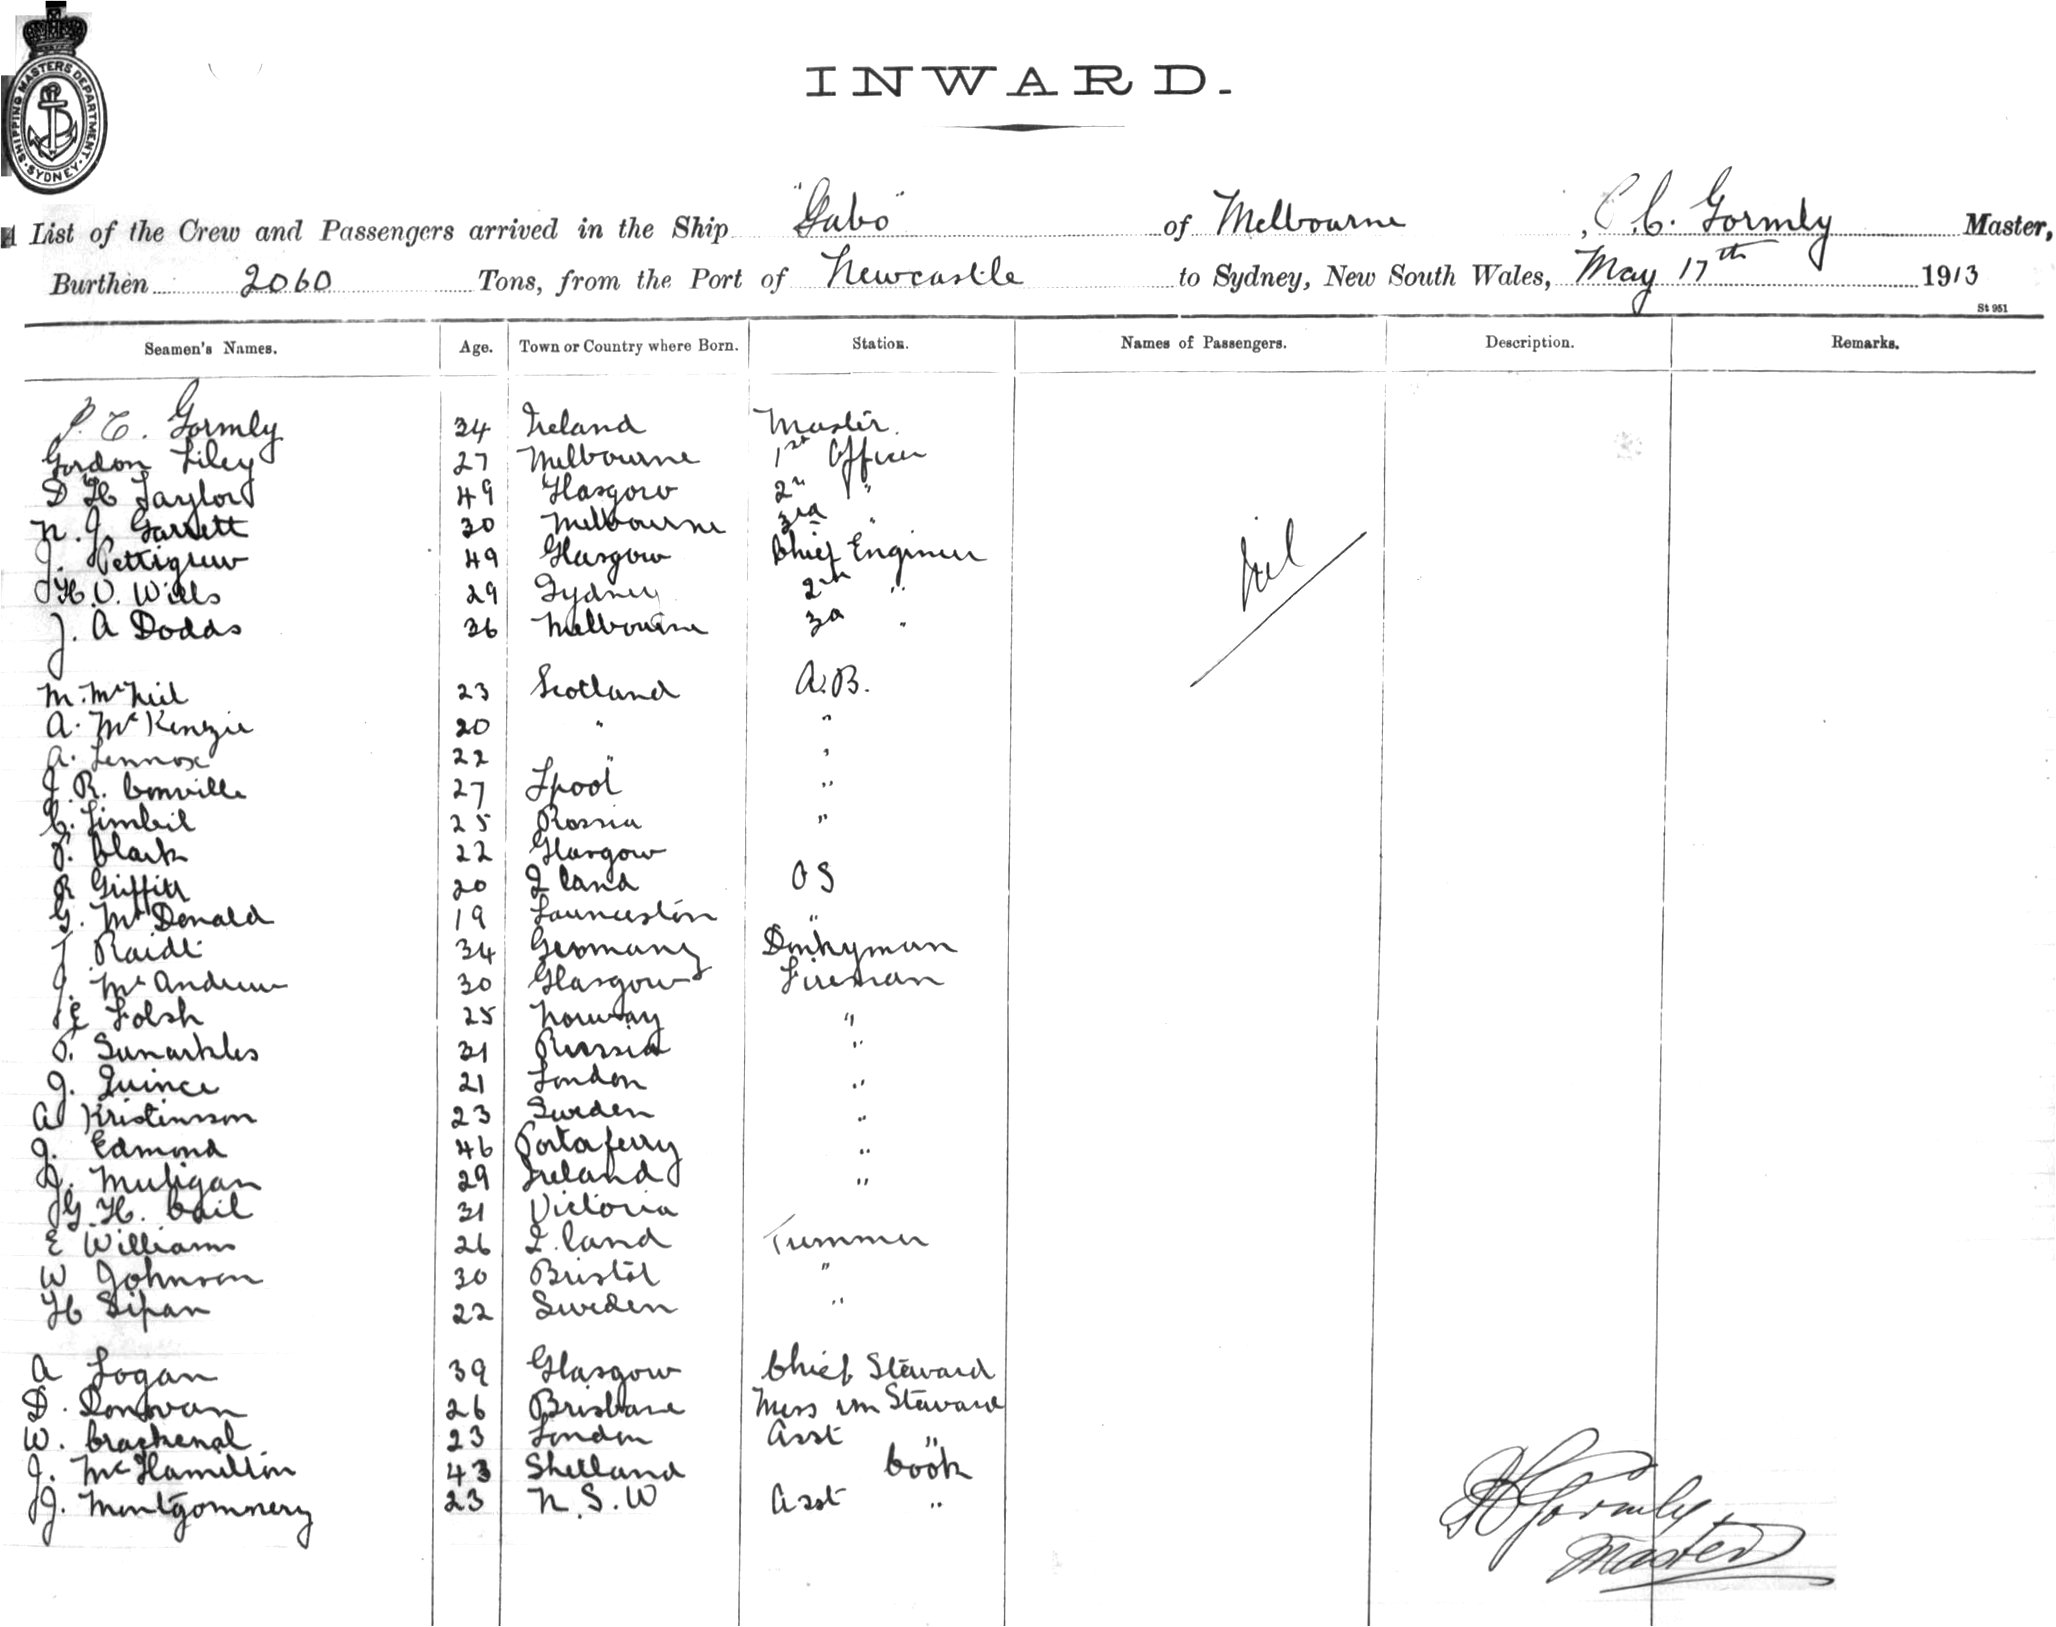 SHIPPING MASTERS DEPARTMENT · SYDNEY ·
INWARD.
A List of the Crew and Passengers arrived in the Ship "Gabo" of Melbourne, P. C. Gormly Master,
Burthen 2060 Tons, from the Port of Newcastle to Sydney, New South Wales, May 17th 1913
St 951
Seamen's Names. Age. Town or Country where Born. Station. Names of Passengers. Description. Remarks.
P. C. Gormly 34 Ireland Master.
Gordon Liley 27 Melbourne 1st Officer
D H Taylor 49 Glasgow 2n "
N. J. Garrett 30 Melbourne 3rd "
J. Pettigrew 49 Glasgow Chief Engineer
H. V. Wills 29 Sydney 2nd "
J. A Dodds 36 Melbourne 3d "
Nil
M. McNeil 23 Scotland A.B.
A. McKenzie 20 " "
A. Lennox 22 " "
J. R. Conville 27 Lpool "
C. Limbil 25 Rossia "
P. Clark 22 Glasgow
R Griffith 20 I land O S
G. McDonald 19 Launceston "
J Raidl 34 Germany Donkyman
J. McAndrew 30 Glasgow Fireman
E Folsh 25 Norway "
P. Sunarkles 31 Russia "
J. Quince 21 London "
A Kristinson 23 Sweden "
J. Edmond 46 Portaferry "
D. Muligan 29 Ireland "
G. H. Cail 31 Victoria
E Williams 26 I. land Trimmer
W Johnson 30 Bristol "
H Sipan 22 Sweden "
A Logan 39 Glasgow Chief Steward
D. Donovan 26 Brisbane Mess rm Steward
W. Crackenal 23 London Asst "
J. McHamilton 43 Shetland Cook
J. Montgommery 23 N. S. W Asst "
P C Gormly
Master